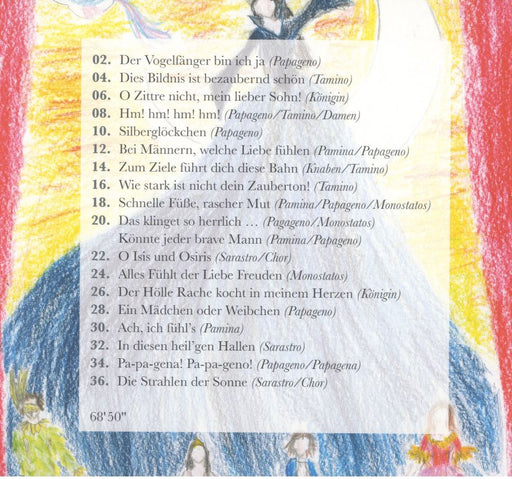 02. Der Vogelfänger bin ich ja (Papageno)
04. Dies Bildnis ist bezaubernd schön (Tamino)
06. O Zittre nicht, mein lieber Sohn! (Königin)
08. Hm! hm! hm! hm! (Papageno/Tamino/Damen)
10. Silberglöckchen (Papageno)
12. Bei Männern, welche Liebe fühlen (Pamina/Papageno)
14. Zum Ziele führt dich diese Bahn (Knaben/Tamino)
16. Wie stark ist nicht dein Zauberton! (Tamino)
18. Schnelle Füße, rascher Mut (Pamina/Papageno/Monostatos)
20. Das klinget so herrlich ... (Pagageno/Monostatos)
Könnte jeder brave Mann (Pamina/Papageno)
22. O Isis und Osiris (Sarastro/Chor)
24. Alles Fühlt der Liebe Freuden (Monostatos)
26. Der Hölle Rache kocht in meinem Herzen (Königin)
28. Ein Mädchen oder Weibchen (Papageno)
30. Ach, ich fühl's (Pamina)
32. In diesen heil'gen Hallen (Sarastro)
34. Pa-pa-gena! Pa-pa-geno! (Papageno/Papagena)
36. Die Strahlen der Sonne (Sarastro/Chor)
68'50"